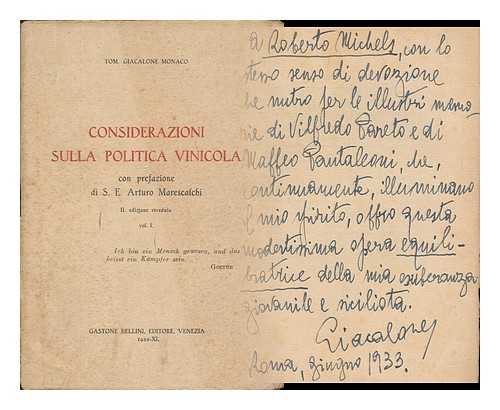 TOM. GIACALONE MONACO
CONSIDERAZIONI
SULLA POLITICA VINICOLA
con prefazione
di S. E. Arturo Marescalchi
II. edizione riveduta
vol. I.
Ich bin ein Mensch gewesen, und das
heisst ein Kämpfer sein.
GOETHE
GASTONE BELLINI, EDITORE, VENEZIA
-XI.
a Roberto Michels, con lo
stesso senso di devozione
che nutro per le illustri memo-
rie di Vilfredo Pareto e di
Maffeo Pantaleoni, che,
continuamente, illuminano
il mio spirito, offro questa
modestissima opera equili-
bratrice della mia esuberanza
giovanile e siciliota.
Giacalone
Roma, giugno 1933.